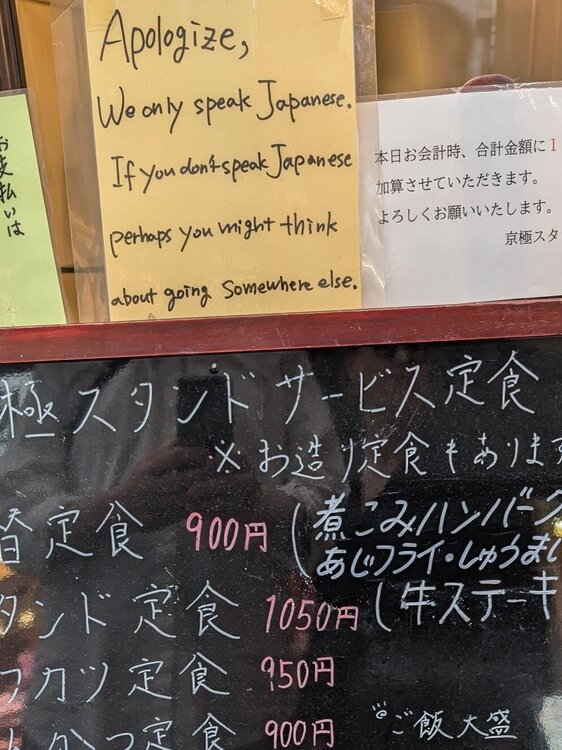 Apologize,
We only speak Japanese.
If you don't speak Japanese
perhaps you might think
about going somewhere else.
お支払いは
本日お会計時、合計金額に1
加算させていただきます。
よろしくお願いいたします。
京極スタ
極スタンドサービス定食
※お造り定食もあります
替定食 900円 (煮こみハンバーグ
あじフライ・しゅうまい
タンド定食 1050円 (牛ステーキ
カツ定食 950円
かつ定食 900円 ご飯大盛